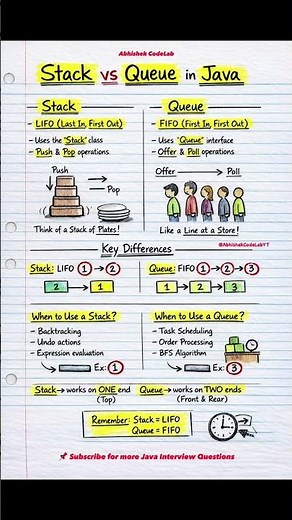 Abhishek CodeLab
Stack vs Queue in Java
Stack
- LIFO (Last In, First Out)
- Uses the "Stack" class
- Push & Pop operations
Push
Pop
Think of a Stack of Plates!
Queue
- FIFO (First In, First Out)
- Uses "Queue" interface
- Offer & Poll operations
Offer → Poll
Like a Line at a Store!
@AbhishekCodeLabYT
Key Differences
Stack: LIFO 1 → 2
2 → 1
Queue: FIFO 1 → 2 → 3
1 → 2 → 3
When to Use a Stack?
- Backtracking
- Undo actions
- Expression evaluation
Ex: 1
When to Use a Queue?
- Task Scheduling
- Order Processing
- BFS Algorithm
Ex: 3
Stack → works on ONE end
(Top)
Queue → works on TWO ends
(Front & Rear)
Remember: Stack = LIFO
Queue = FIFO
Subscribe for more Java Interview Questions